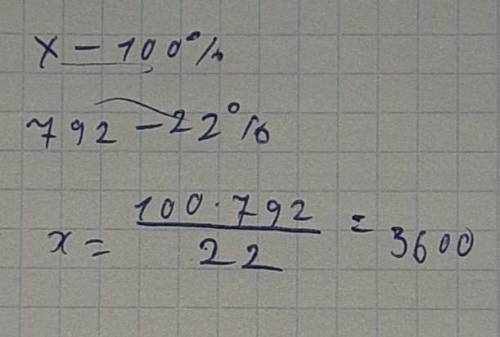 x – 100%
792 – 22%
x = \frac{100 \cdot 792}{22} = 3600